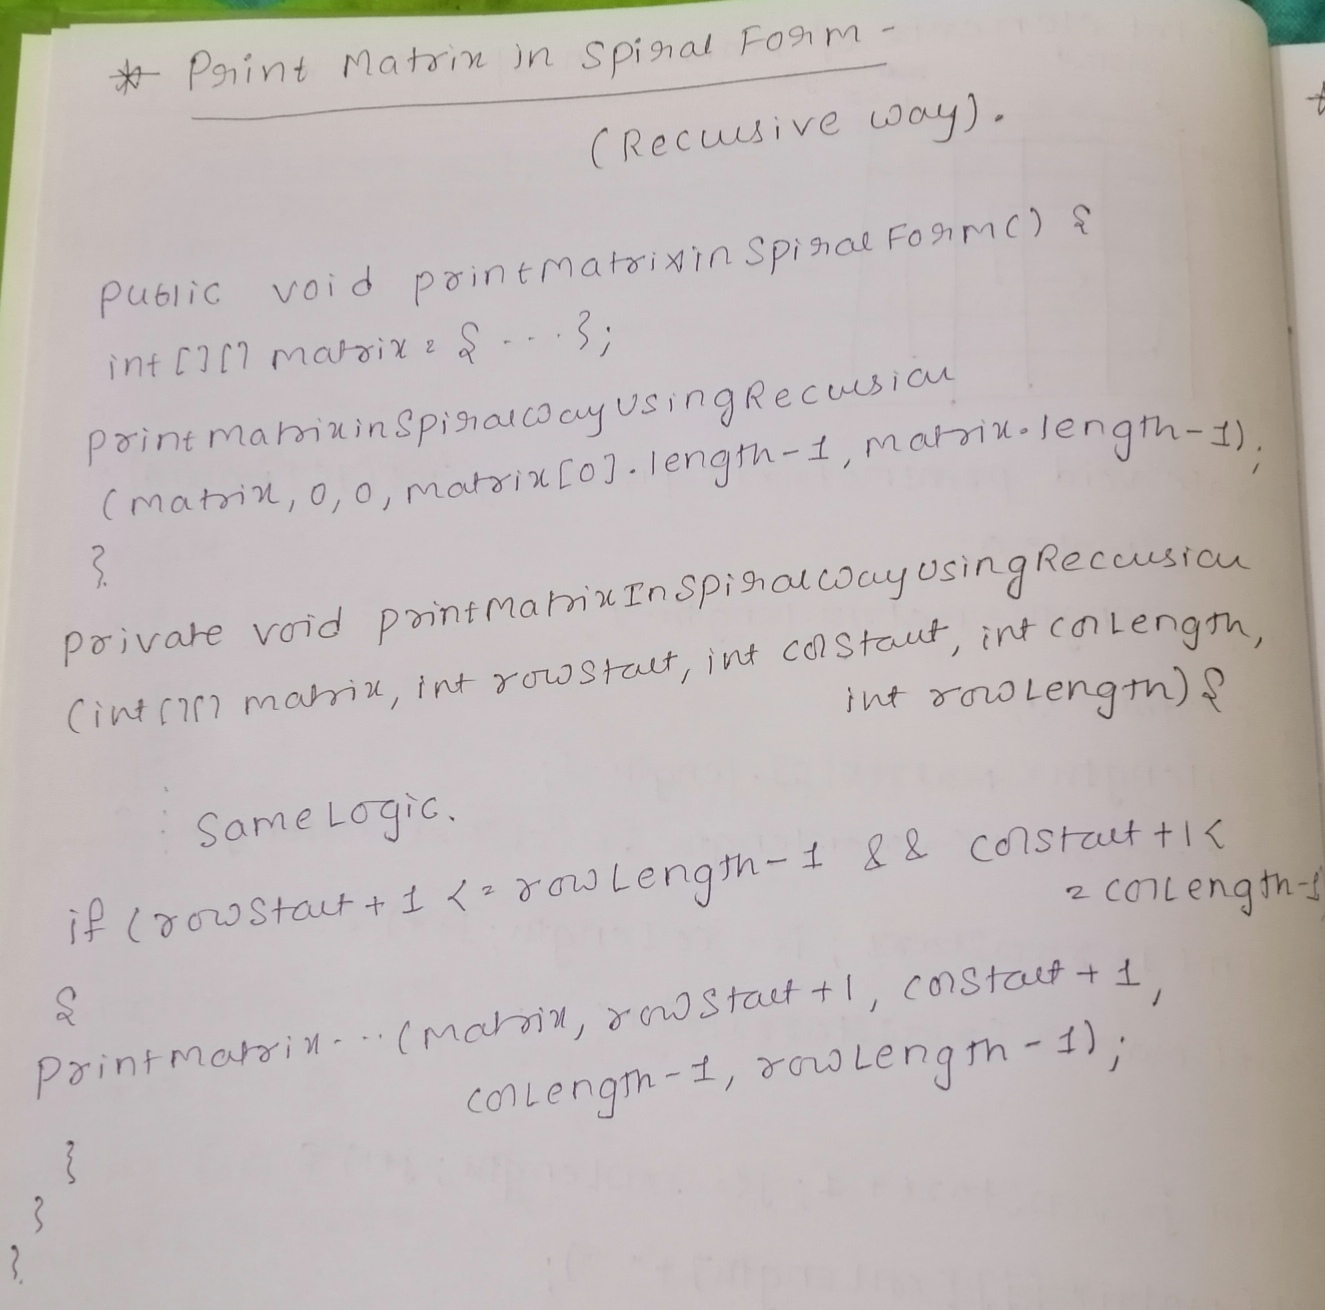 * Print Matrix in Spiral Form -
(Recursive way).
public void printMatrixinSpiralForm() {
int[][] matrix = { ... };
printmatrixinSpiralwayUsingRecursion
(matrix, 0, 0, matrix[0].length-1, matrix.length-1);
}
private void printMatrixInSpiralwayUsingRecursion
(int[][] matrix, int rowStart, int colStart, int colLength,
int rowLength) {
Same Logic.
if (rowStart + 1 <= rowLength-1 && colStart +1<
= colLength-1
{
printmatrix...(matrix, rowStart +1, colStart + 1,
colLength-1, rowLength-1);
}
}
}